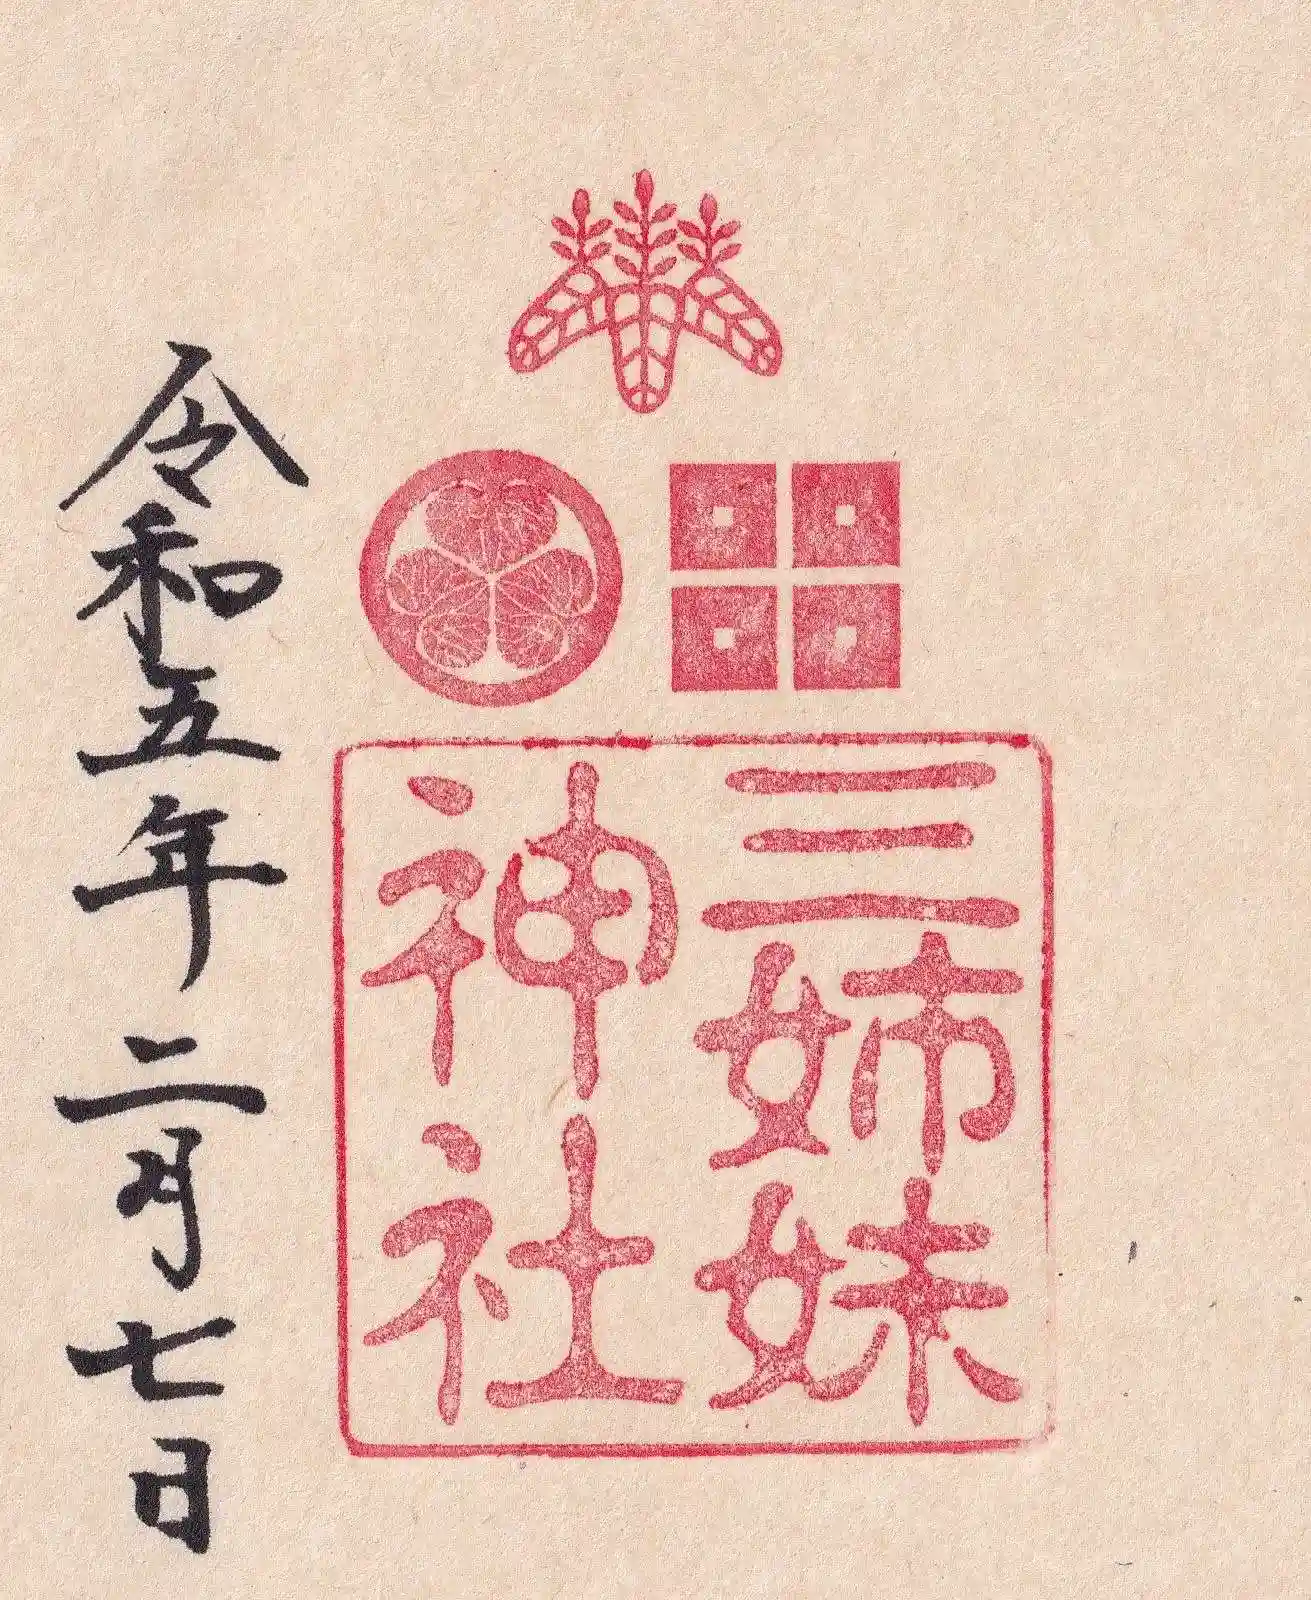 三姉妹
神社
令和五年二月七日